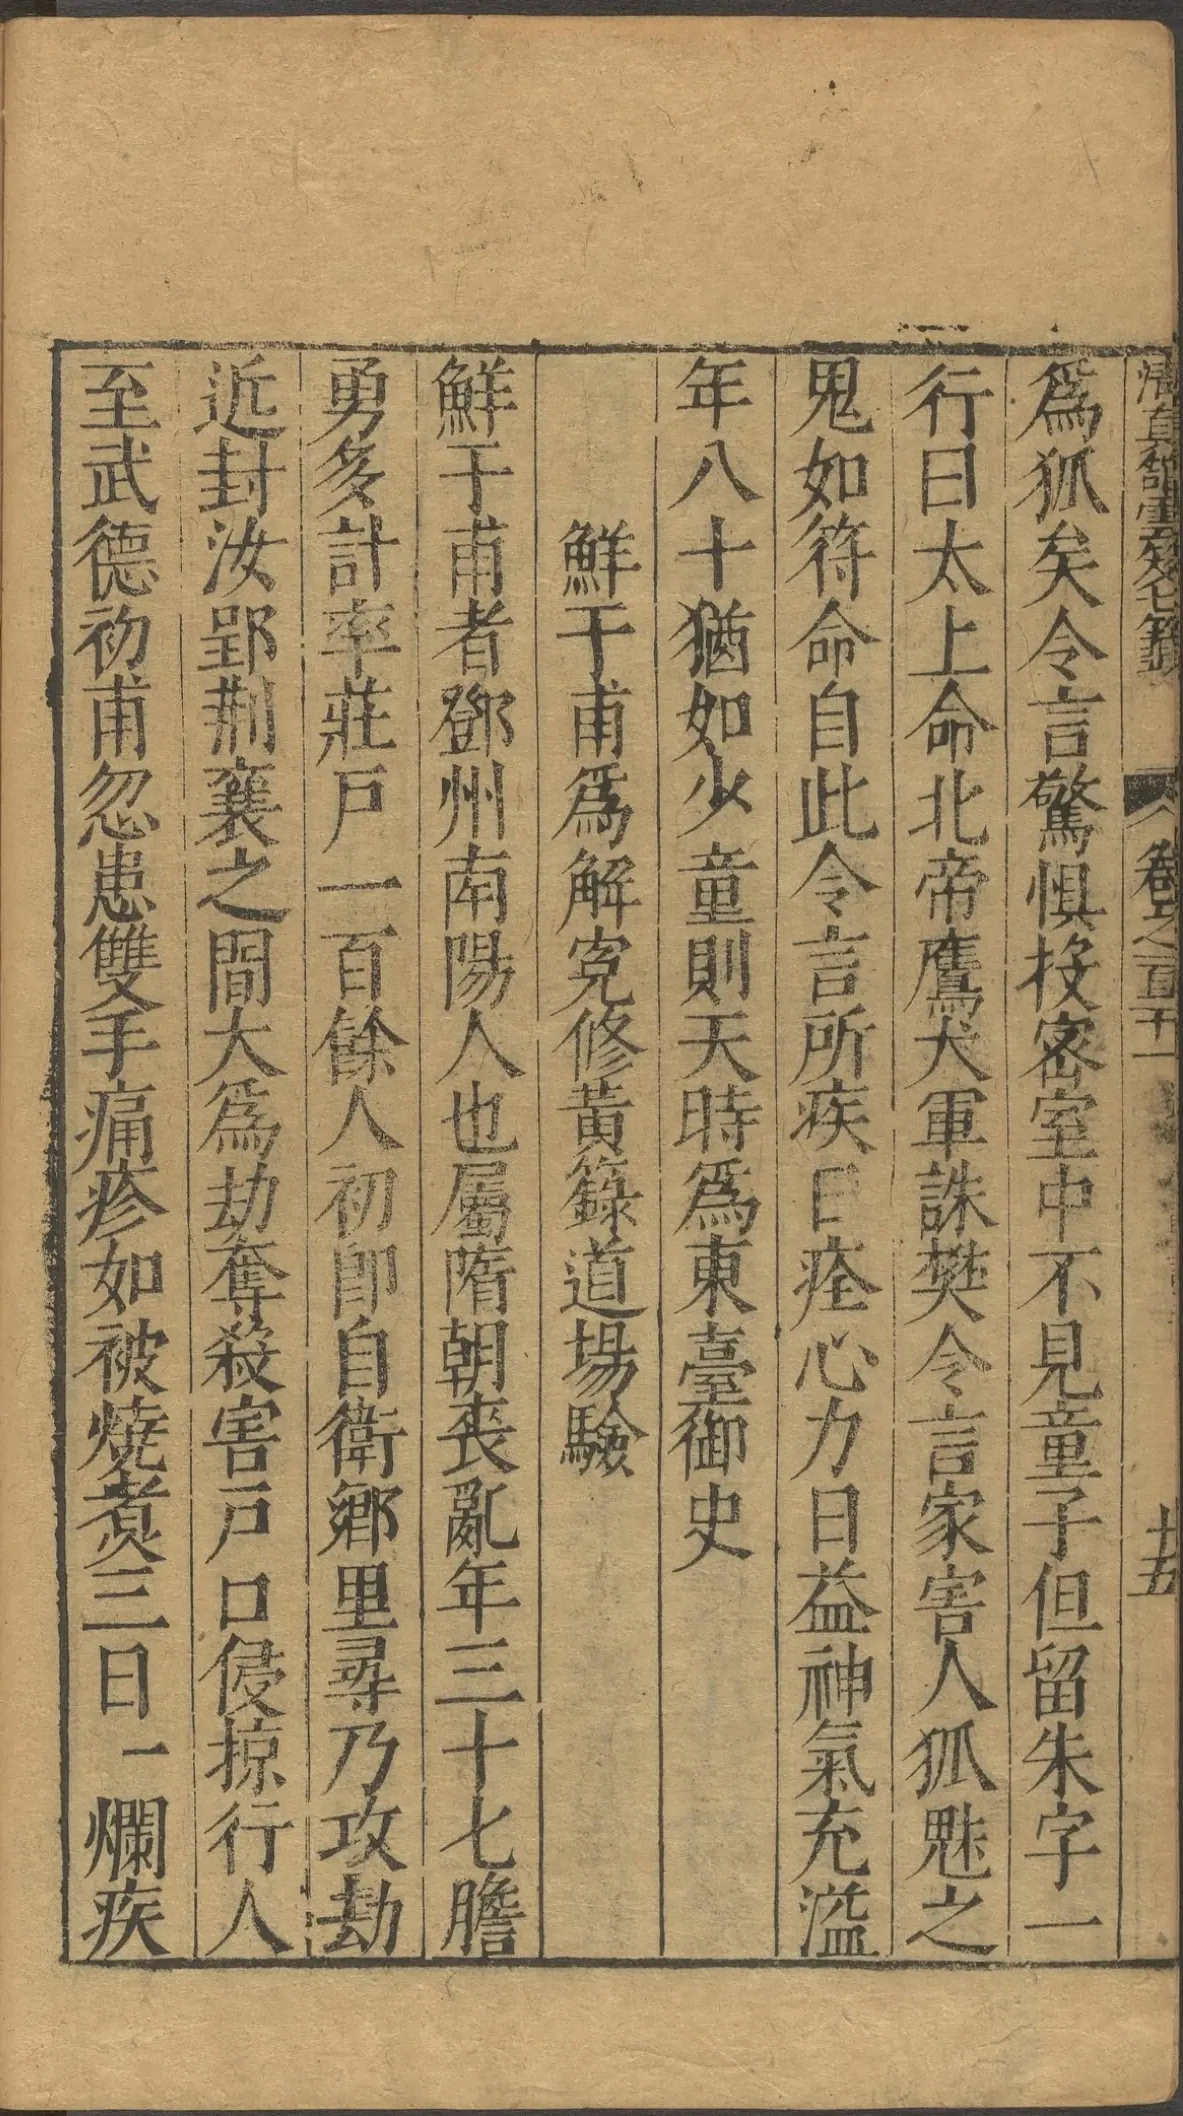 清真館雲笈七籤 卷之一百二十一 十五
爲狐矣令言驚惧投密室中不見童子但留朱字一
行曰太上命北帝鷹犬軍誅樊令言家害人狐魅之
鬼如符命自此令言所疾日痊心力日益神氣充溢
年八十猶如少童則天時爲東臺御史
鮮于甫爲解寃修黃籙道場驗
鮮于甫者鄧州南陽人也屬隋朝喪亂年三十七膽
勇多計率莊戸一百餘人初即自衛鄉里尋乃攻劫
近封汝郢荆襄之間大爲劫奪殺害戸口侵掠行人
至武德初甫忽患雙手痛疹如被燒煑三日一爛疾